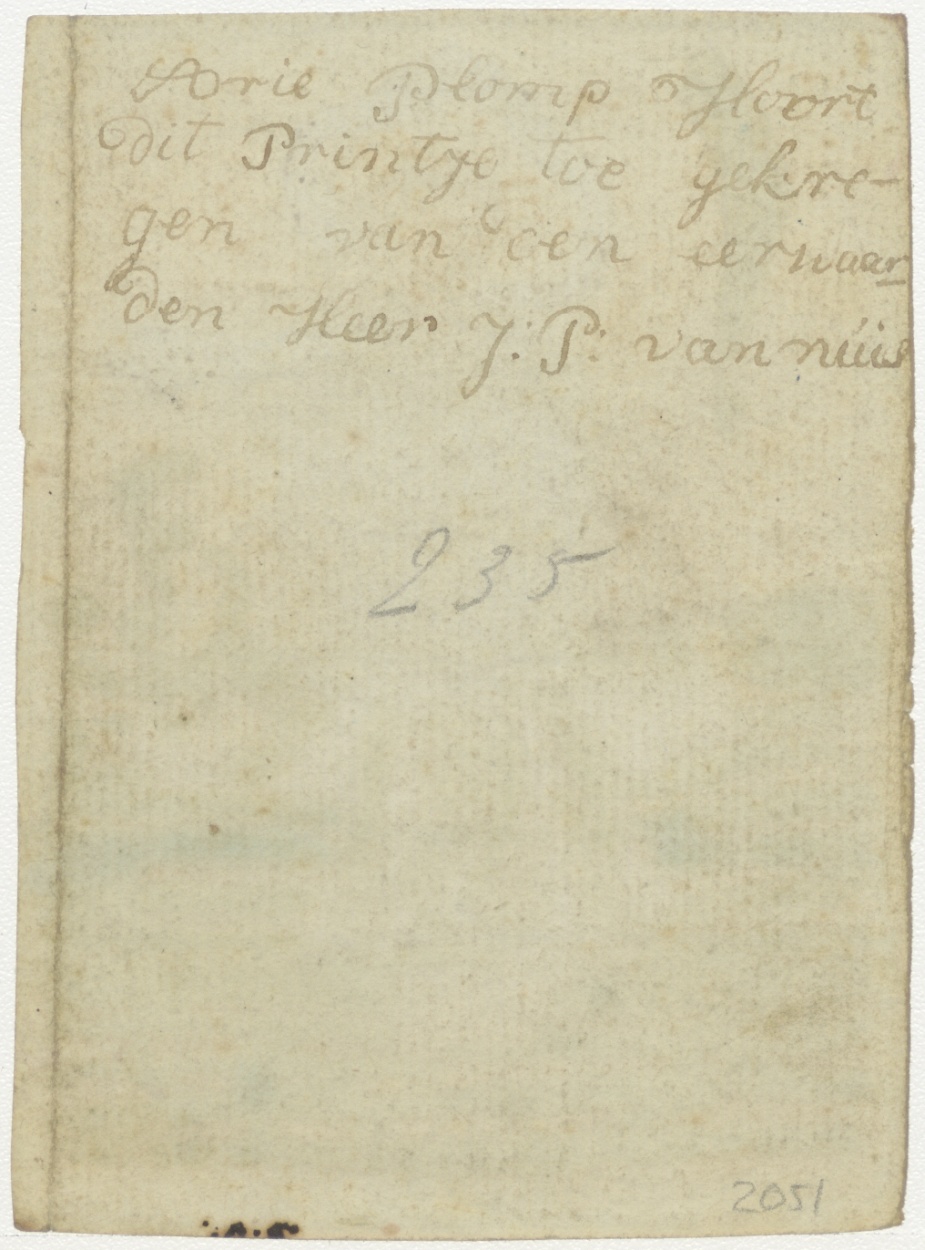 Arie Plomp Hoort
dit Printje toe gekre-
gen van een eerwaar
den Heer J: P: van nuis
235
2051